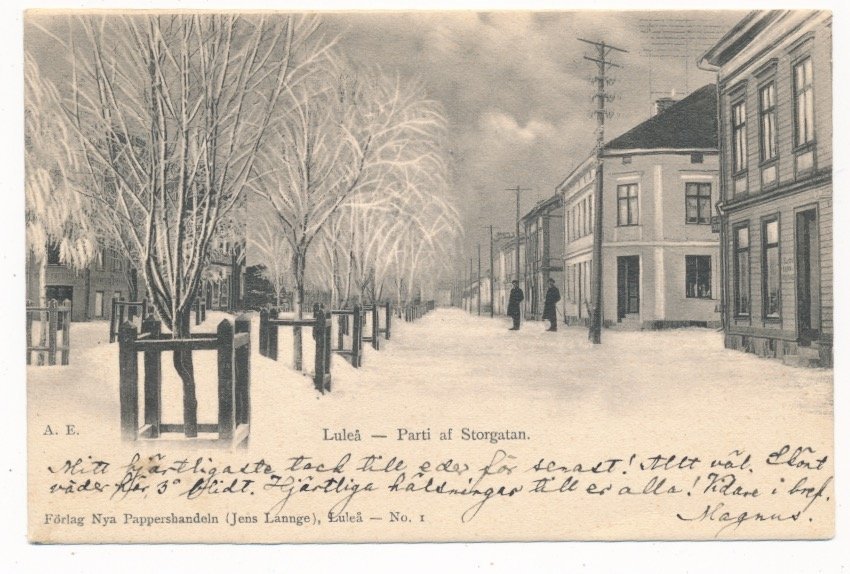 A. E.
Luleå — Parti af Storgatan.
Mitt hjärtligaste tack till eder för senast! Allt väl. Skönt
väder här, 3° blidt. Hjärtliga hälsningar till er alla! Vidare i bref.
Magnus.
Förlag Nya Pappershandeln (Jens Lannge), Luleå — No. 1